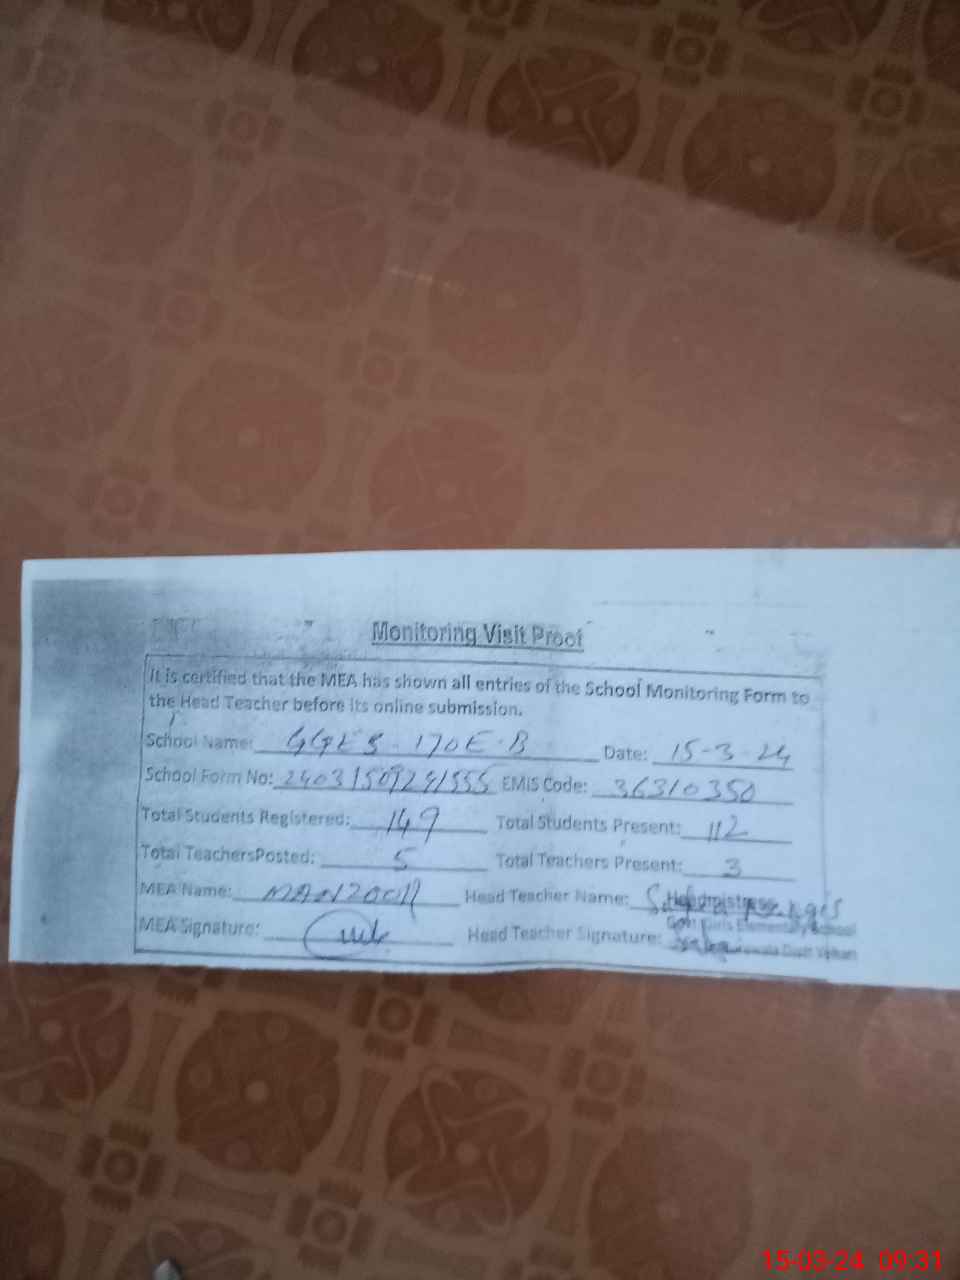 Monitoring Visit Proof
It is certified that the MEA has shown all entries of the School Monitoring Form to
the Head Teacher before its online submission.
School Name: GGES 170E-B Date: 15-3-24
School Form No: EMIS Code: 36310350
Total Students Registered: 149 Total Students Present: 112
Total TeachersPosted: 5 Total Teachers Present: 3
MEA Name: Head Teacher Name: Headmistress
Govt Girls Elementary School
MEA Signature: Head Teacher Signature:
15-03-24 09:31